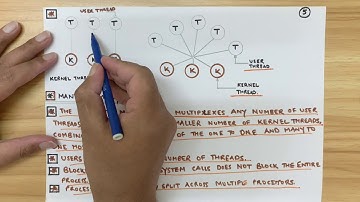 USER THREAD
5
T T T
T T T T T T
USER
THREAD.
K K K
K K K
KERNEL THREAD
KERNEL
THREAD.
MAN
THE MULTIPLEXES ANY NUMBER OF USER
THREADS SMALLER NUMBER OF KERNEL THREADS,
COMBIN OF THE ONE TO ONE AND MANY TO
ONE MO
USERS NUMBER OF THREADS..
BLOCK SYSTEM CALLS DOES NOT BLOCK THE ENTIRE
PROCESS.
PROCES SPLIT ACROSS MULTIPLE PROCESSORS.